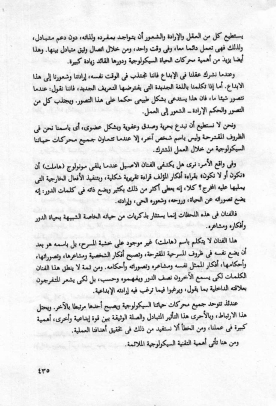 يستطيع كل من العقل والإرادة والشعور أن يتواجد بمفرده ولذاته، دون دعم متبادل،
ولذلك فهي تعمل دائما معا، وفي وقت واحد، ومن خلال اتصال وثيق متبادل بينها. وهذا
أيضا يزيد من أهمية محركات الحياة السيكولوجية ودورها القائد زيادة كبيرة.
وعندما نشرك عقلنا في الإبداع فاننا نجتذب في الوقت نفسه، إرادتنا وشعورنا إلى هذا
الابداع. أما إذا تكلمنا باللغة الجديدة التي يفترضها التعريف الجديد، فاننا نقول: عندما
نتصور شيئا ما، فان هذا يستدعي بشكل طبيعي حكما على هذا التصور. ويجتذب كل من
التصور والحكم الإرادة ـ الشعور إلى العمل.
ونحن لا نستطيع أن نبدع بحرية وصدق وعفوية وبشكل عضوي، أي باسمنا نحن في
الظروف المقترحة وليس باسم شخص آخر، إلا عندما تتعاون جميع محركات حياتنا
السيكولوجية من خلال العمل المشترك.
وفي واقع الأمر: ترى هل يكتفي الفنان الاصيل عندما يلقي مونولوج (هاملت) أن
«نكون أو لا نكون» بقراءة أفكار المؤلف قراءة تقريرية شكلية، وبتنفيذ الأفعال الخارجية التي
يمليها عليه المخرج؟ كلا، إنه يعطي أكثر من ذلك بكثير ويضع ذاته في كلمات الدور: إنه
يضع تصوراته عن الحياة، وروحه، وشعوره الحي، وإرادته.
فالفنان في هذه اللحظات إنما يستثار بذكريات من حياته الخاصة الشبيهة بحياة الدور
وأفكاره ومشاعره.
هذا الفنان لا يتكلم باسم (هاملت) غير موجود على خشبة المسرح، بل باسمه هو بعد
أن يضع نفسه في ظروف المسرحية المقترحة، وتصبح أفكار الشخصية ومشاعرها، وتصوراتها،
وأحكامها، أفكار الممثل نفسه ومشاعره وتصوراته وأحكامه. ومن ثمة لا ينطق هذا الفنان
الكلمات لكي يسمع الآخرون نصف الدور ويفهموه وحسب، بل لكي يشعر المتفرجون
بعلاقته الداخلية بما يقول، ويرغبوا فيما ترغب فيه إرادته الإبداعية.
عندئذ تتوحد جميع محركات حياتنا السيكولوجية ويصبح أحدها مرتبطا بالآخر. ويمثل
هذا الارتباط، وبالأحرى هذا التأثير المتبادل والصلة الوثيقة بين قوة إبداعية وأخرى، أهمية
كبيرة في عملنا، ومن الخطأ ألا نستفيد من ذلك في تحقيق أهدافنا العملية.
ومن هنا تأتي أهمية التقنية السيكولوجية الملائمة.
٤٣٥